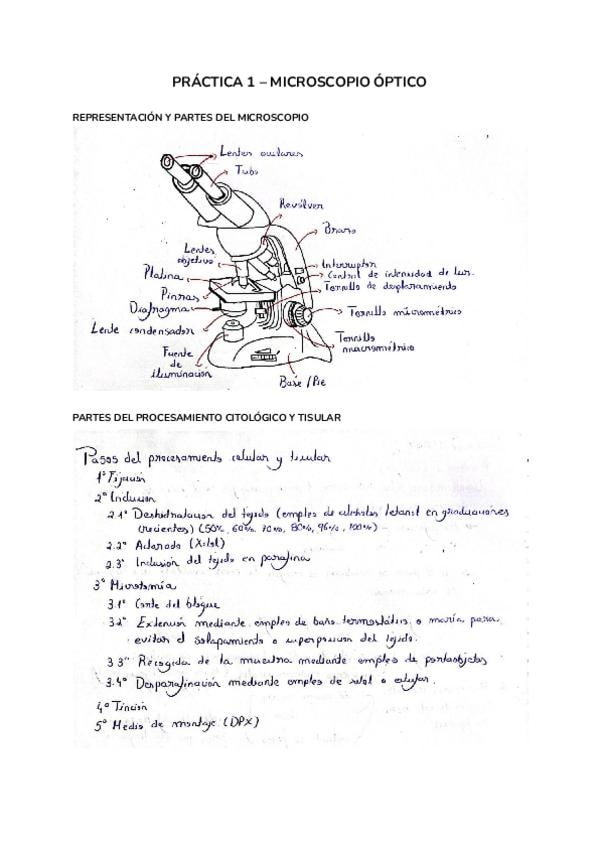 PRÁCTICA 1 – MICROSCOPIO ÓPTICO
REPRESENTACIÓN Y PARTES DEL MICROSCOPIO
Lentes oculares
Tubo
Revólver
Brazo
Lentes
objetivo
Interruptor
Control de intensidad de luz.
Platina
Tornillo de desplazamiento
Pinzas
Diafragma
Tornillo micrométrico
Lente condensador
Tornillo
macrométrico
Fuente
de
iluminación
Base/Pie
PARTES DEL PROCESAMIENTO CITOLÓGICO Y TISULAR
Pasos del procesamiento celular y tisular
1º Fijación
2º Inclusión
2.1º Deshidratación del tejido (empleo de alcoholes / etanol en graduaciones
crecientes) (50%, 60%, 70%, 80%, 96%, 100%)
2.2º Aclarado (Xilol)
2.3º Inclusión del tejido en parafina
3º Microtomía
3.1º Corte del bloque
3.2º Extensión mediante empleo de baño termostático o maría para
evitar el solapamiento o superposición del tejido.
3.3º Recogida de la muestra mediante empleo de portaobjetos
3.4º Desparafinación mediante empleo de xilol o
4º Tinción
5º Medio de montaje (DPX)